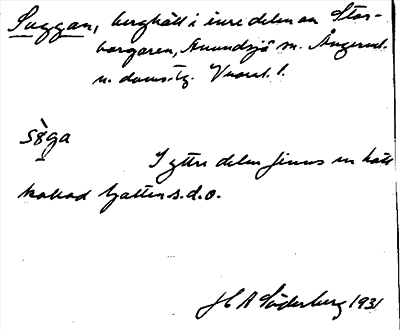 Suggan, berghäll i inre delen av Stor-
borgaren, Anundsjö sn. Ångerml.
n. doms.tg. Vnorrl. l.
såga
I yttre delen finns en häll
kallad Galten s.d.o.
H A Söderberg 1931